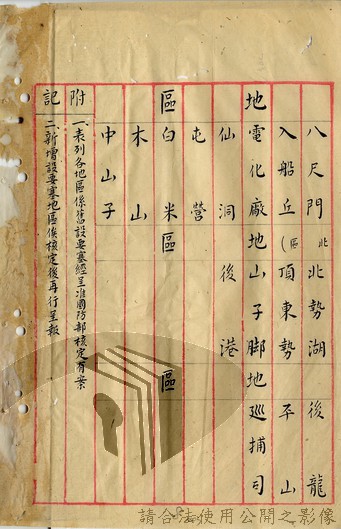 八尺門 北 北勢湖 後龍
入船丘(區 頂東勢 平山
地 電化廠 地山子脚 地巡捕司
仙洞 後港
屯營
區 白米區 區
木山
中山子
附記
一、表列各地區係舊設要塞經呈准國防部核定有案
二、新增設要塞地區俟核定後再行呈報
請合法使用公開之影像